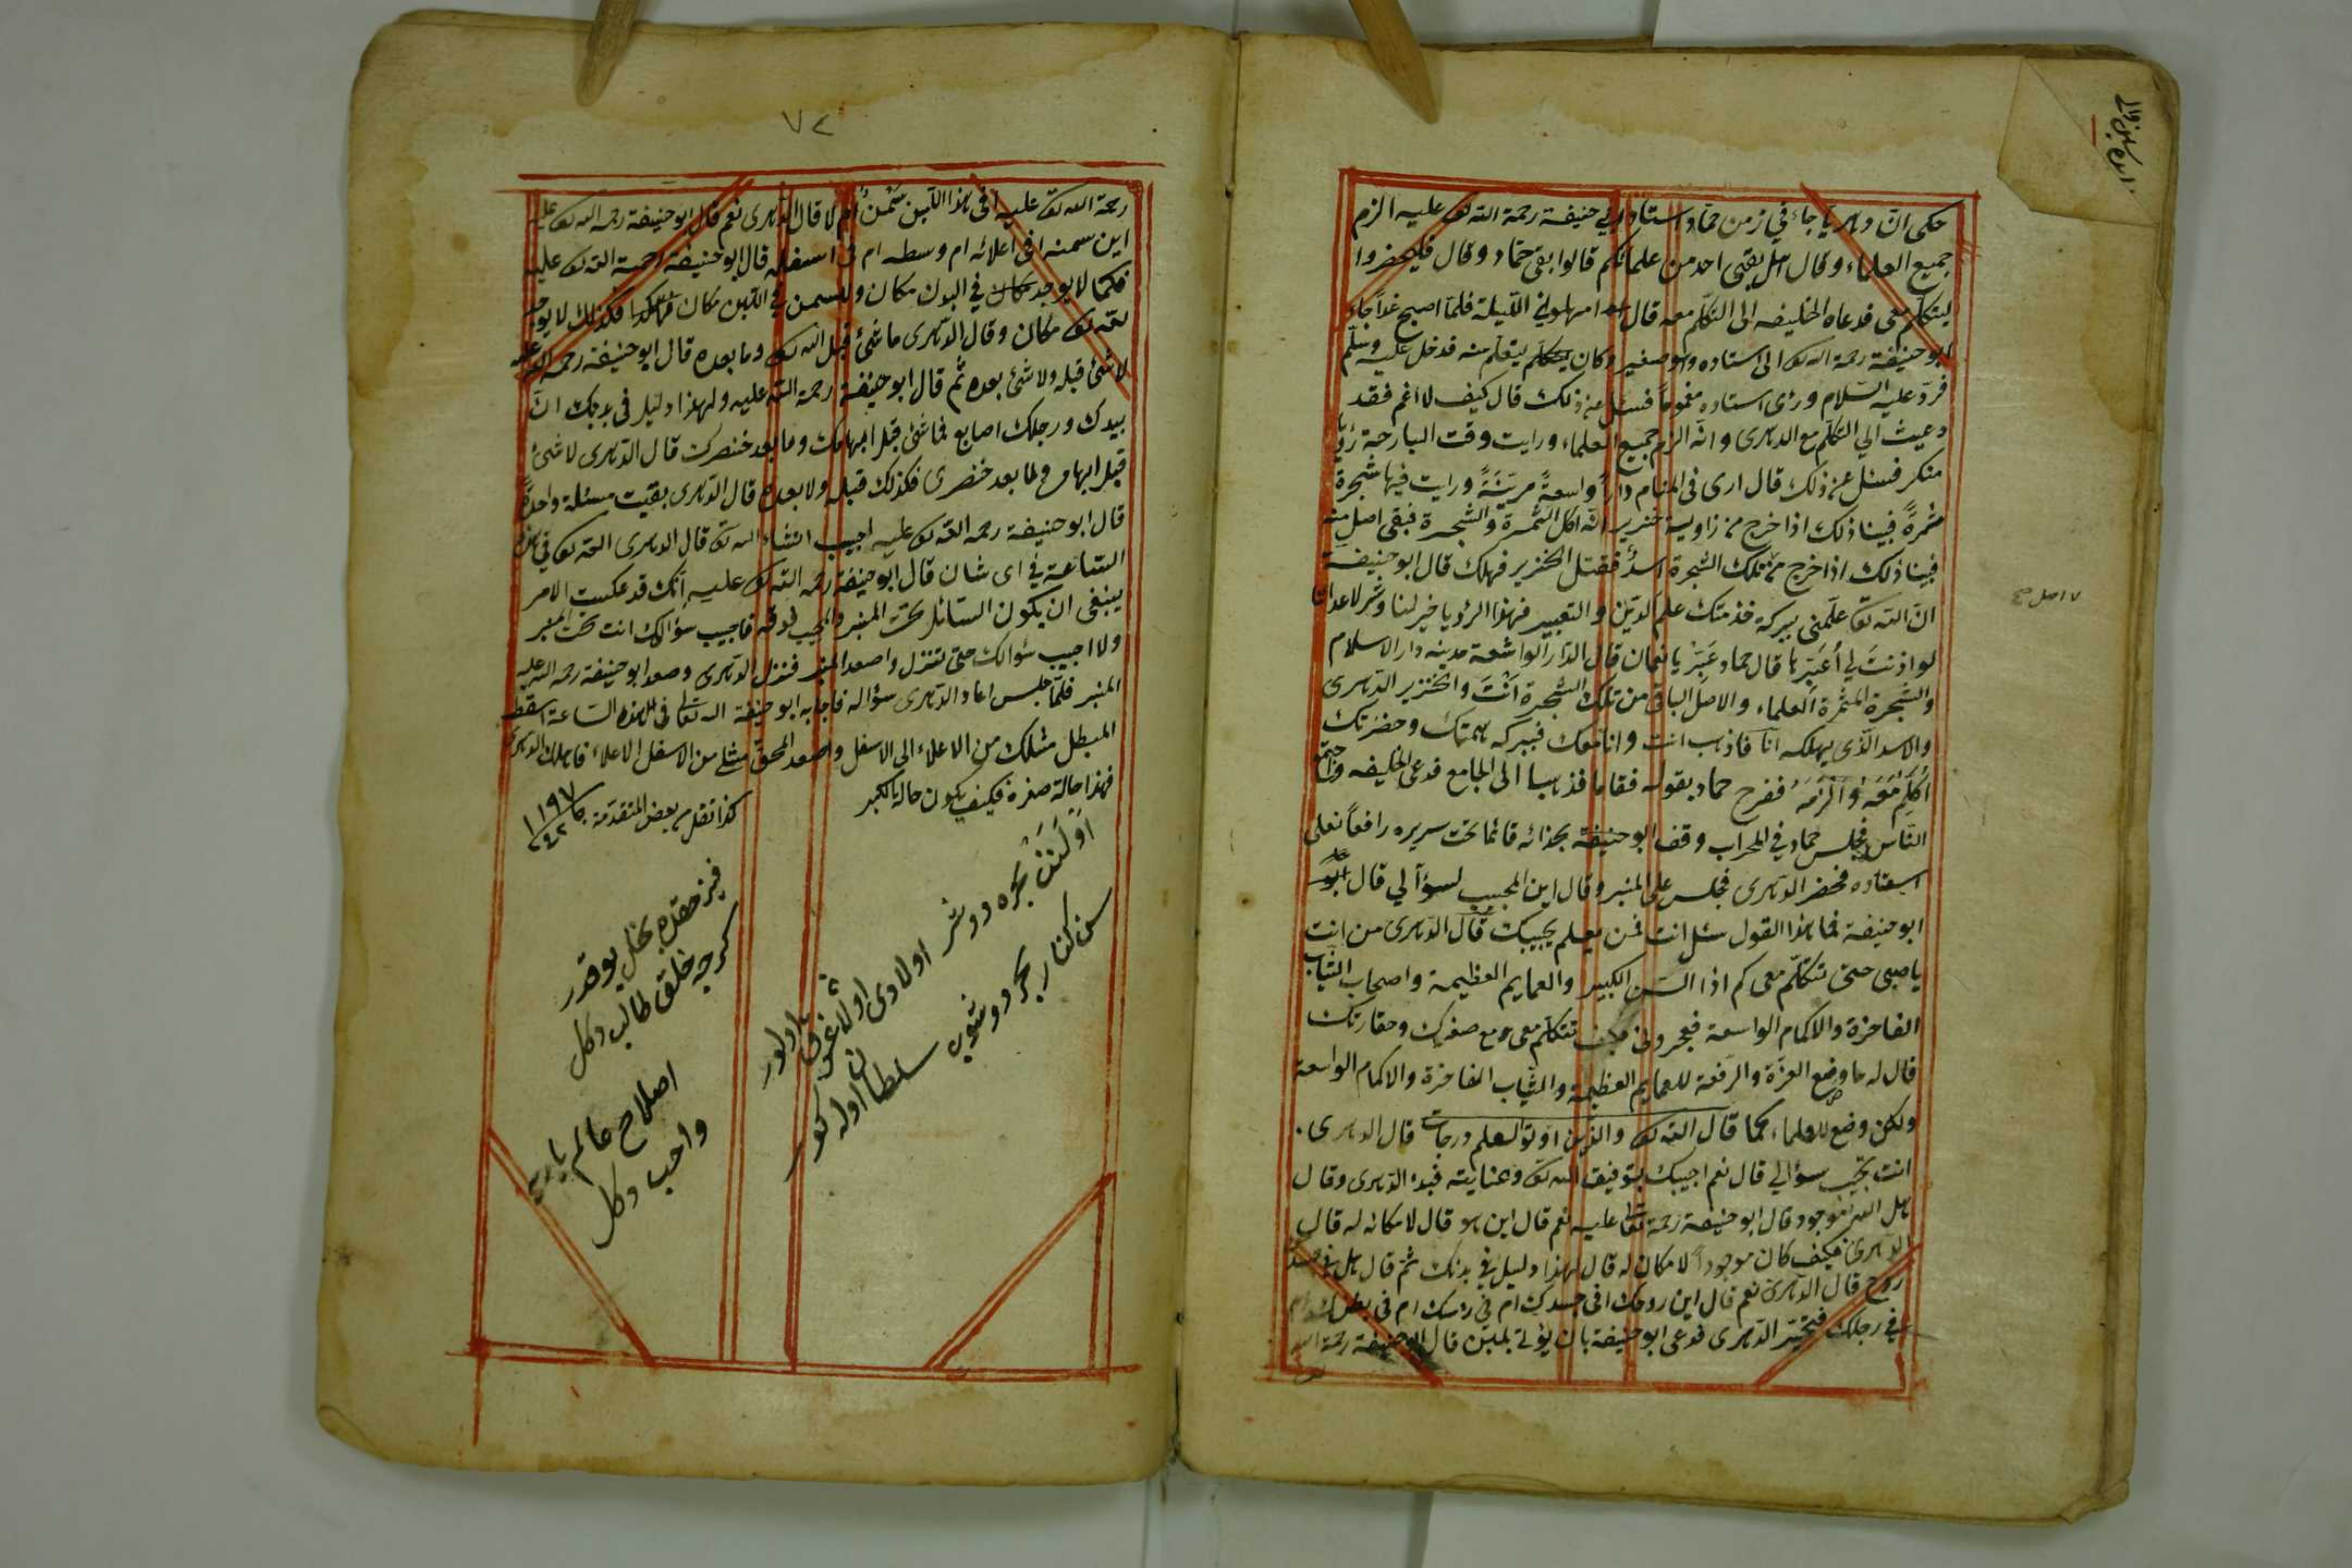 حكى انّ دهريا جاء في زمن حمّاد استاد ابي حنيفة رحمة الله تع عليه الزم
جميع العلماء وقال هل بقى احد من علمائكم قالوا بقى حمّاد وقال فليحضروا
ليتكلّم معى فدعاه الخليفه الى التكلّم معه قال امهلوني اللّيلة فلمّا اصبح غداً جاء
ابو حنيفة رحمة الله تع الى استاده وهو صغير وكان يتعلّم منه فدخل عليه وسلّم
فردّ عليه السّلام ورئى استاده مغموماً فسئل عن ذلك قال كيف لا اغم فقد
دعيت الي التكلّم مع الدهرى وانّه الزم جميع العلماء ورايت وقت البارحة رؤيا
منكر فسئل عن ذلك قال ارى فى المنام داراً واسعةً مزيّنةً ورايت فيها شجرة
مثمرةً فبينا ذلك اذا خرج من زاوية خنزير انّه اكل الثّمرة والشّجرة فبقى اصل منه
فبينا ذلك اذا خرج من تلك الشّجرة اسدٌ فقتل الخنزير فهلك قال ابو حنيفة
انّ الله تع علّمنى ببركة خدمتك علم الدّين والتعبير فهذا الرؤيا خير لنا وشر لاعدائنا
لو اذنتَ لي اُعَبّرها قال حماد عَبّرْ يا نعمان قال الدّار الواسعة مدينه دار الاسلام
والشّجرة المثمرة العلماء والاصل الباقى من تلك الشّجرة اَنْتَ والخنزير الدّهرى
والاسد الّذى يهلكه انا فاذهب انت وانا معك فببركه همّتك وحضرتك
اُكَلّم معه واُلْزِمَه ففرح حماد بقوله فقاما فذهبا الى الجامع فدعى الخليفه واجتمع
النّاس فجلس حماد في المحراب وقف ابو حنيفة بحذائه قائما تحت سريره رافعاً نعلى
استاده فحضر الدّهرى فجلس على المنبر وقال اين المجيب لسؤالي قال
ابو حنيفة فما هذا القول سئل انت فمن يعلم يجيبك قال الدّهرى من انت
يا صبى حتى تتكلّم معى كم اذا السّن الكبير والعمايم العظيمة واصحاب الثياب
الفاخرة والاكمام الواسعة فعجروا فكيف تتكلّم معى مع صغرك وحقارتك
قال له ما وضع العزّة والرّفعة للعمايم العظيمة والثياب الفاخرة والاكمام الواسعة
ولكن وضع للعلماء كما قال الله تع والذين اوتوا العلم درجات قال الدهرى.
انت تجيب سؤالي قال نعم اجيبك بتوفيق الله تع وعنايته فبدء الدّهرى وقال
هل الله موجود قال ابو حنيفة رحمة تعا عليه نعم قال اين هو قال لا مكانه له قال
الدّهرى فكيف كان موجوداً لا مكان له قال لهذا دليل في بدنك ثم قال هل في جسدك
روح قال الدّهرى نعم قال اين روحك افى جسدك ام في رئسك ام فى بطنك ام
في رجلك فتحيّر الدّهرى فدعى ابو حنيفة بان يؤتي بلبن قال ابو حنيفة رحمة الله
اصل صح
٧٢
رحمة الله تع عليه افى هذا اللّبن سَمْنٌ ام لا قال الدّهرى نعم قال ابو حنيفة رحمه الله تع عليه
اين سمنه افى اعلائه ام وسطه ام فى اسفله قال ابو حنيفة رحمة الله تع عليه
فكما لا يوجد في البدن مكان وللسمن في اللّبن مكان فكذلك لا يوجد
لله تع مكان وقال الدّهرى ما شئ قبل الله تع وما بعده قال ابو حنيفة رحمه الله عليه
لا شئ قبله ولا شئ بعده ثم قال ابو حنيفة رحمة الله عليه ولهذا دليل فى بدنك انّ
بيدك ورجلك اصابع فما شئ قبل ابهامك وما بعد خنصرك قال الدّهرى لا شئ
قبل ابهامى ولما بعد خنصرى فكذلك قبله ولا بعده قال الدّهرى بقيت مسئلة واحدةً
قال ابو حنيفة رحمه الله تع عليه اجيب انشاء الله تع قال الدهرى الله تع في هذه
السّاعة في اى شان قال ابو حنيفة رحمه الله تع عليه انّك قد عكست الامر
ينبغى ان يكون السّائل تحت المنبر والمجيب فوقه فاجيب سؤالك انت تحت المنبر
ولا اجيب سئوالك حتى تنزل واصعد المنبر فنزل الدّهرى وصعد ابو حنيفة رحمه الله عليه
المنبر فلمّا جلس اعاد الدّهرى سؤاله فاجابه ابو حنيفة الله تعالى فى هذه السّاعة اسقط
المبطل مثلك من الاعلاء الى الاسفل واصعد المحق مثلى من الاسفل الاعلاء فاهلك الدهرى
فهذا حالة صغره فكيف يكون حاله بالكبر
كذا نقل من بعض المتقدّمة ١١٩٧
سن كنار بحر دوشوب سلطان اوله كور
فيز حقده بخل يوقدر
كرچه خلق طالب دكل
اصلاح عالم يارب
واجب دكل